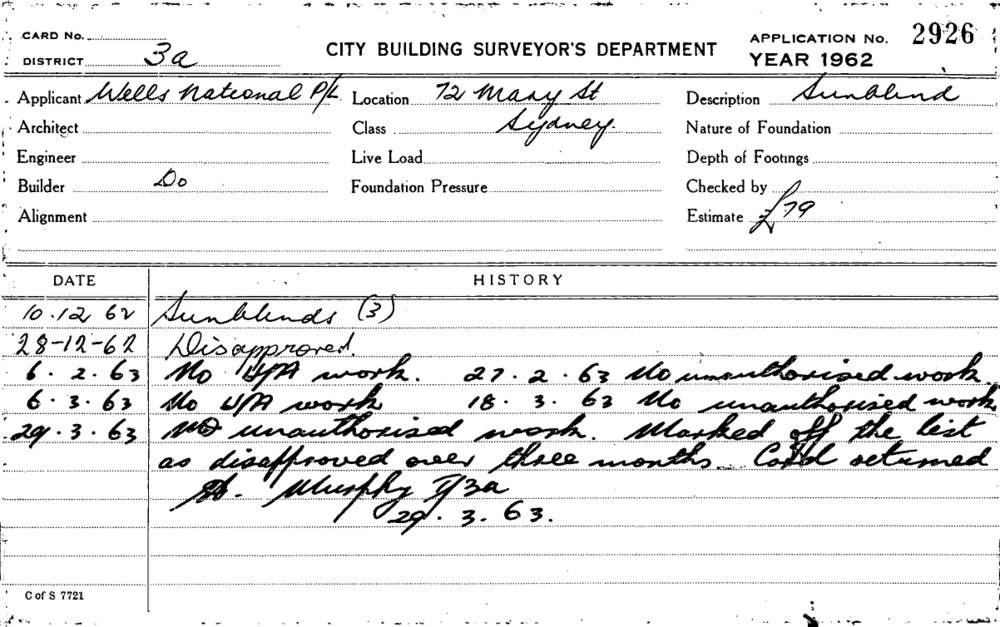 CARD No.
DISTRICT 3a
CITY BUILDING SURVEYOR'S DEPARTMENT
APPLICATION No. 2926
YEAR 1962
Applicant Wells National P/L Location 72 Mary St Description Sunblind
Architect Class Sydney. Nature of Foundation
Engineer Live Load Depth of Footings
Builder Do Foundation Pressure Checked by
Alignment Estimate £79
DATE HISTORY
10.12 62 Sunblinds (3)
28-12-62 Disapproved.
6.2.63 No U/A work. 27.2.63 No unauthorised work.
6.3.63 No U/A work 18.3.63 No unauthorised work
29.3.63 No unauthorised work. Marked off the list
as disapproved over three months. Card returned
Murphy I/3a
29.3.63.
C of S 7721